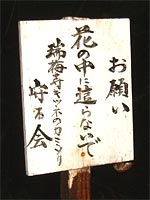 お願い
花の中に這らないで
瑞梅寺キツネのカミソリ
守る会